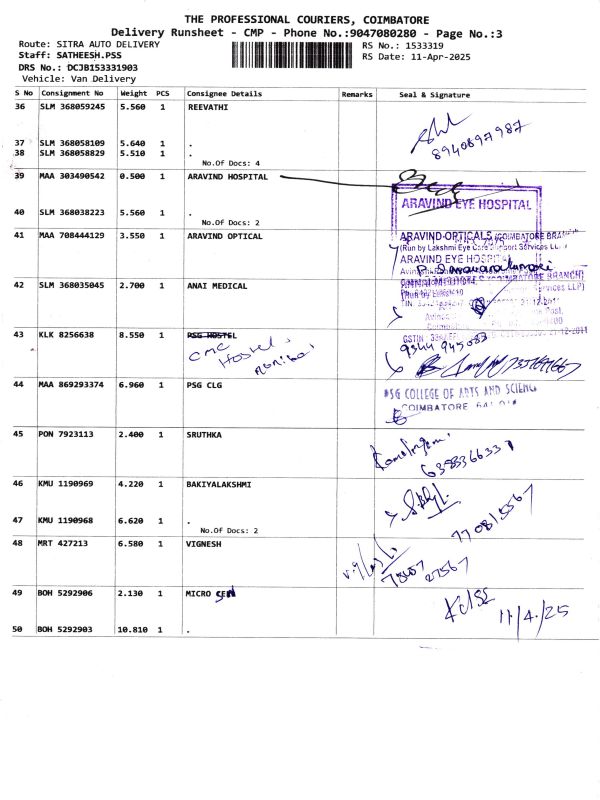 THE PROFESSIONAL COURIERS, COIMBATORE
Delivery Runsheet - CMP - Phone No.:9047080280 - Page No.:3
Route: SITRA AUTO DELIVERY
RS No.: 1533319
Staff: SATHEESH.PSS
RS Date: 11-Apr-2025
DRS No.: DCJB153331903
Vehicle: Van Delivery
S No Consignment No Weight PCS Consignee Details Remarks Seal & Signature
36 SLM 368059245 5.560 1 REEVATHI
8940897987
37 SLM 368058109 5.640 1 .
38 SLM 368058829 5.510 1 .
No.Of Docs: 4
39 MAA 303490542 0.500 1 ARAVIND HOSPITAL
ARAVIND EYE HOSPITAL
40 SLM 368038223 5.560 1 .
No.Of Docs: 2
41 MAA 708444129 3.550 1 ARAVIND OPTICAL
ARAVIND OPTICALS (COIMBATORE BRAN
(Run by Lakshmi Eye Care Support Services LL
ARAVIND EYE HOSPITAL
42 SLM 368035045 2.700 1 ANAI MEDICAL
43 KLK 8256638 8.550 1 PSG HOSTEL
CMC Hostel
9344 945083
44 MAA 869293374 6.960 1 PSG CLG
PSG COLLEGE OF ARTS AND SCIENC
COIMBATORE 641 014
45 PON 7923113 2.400 1 SRUTHKA
46 KMU 1190969 4.220 1 BAKIYALAKSHMI
47 KMU 1190968 6.620 1 .
No.Of Docs: 2
48 MRT 427213 6.580 1 VIGNESH
49 BOH 5292906 2.130 1 MICRO GEN
11/4/25
50 BOH 5292903 10.810 1 .